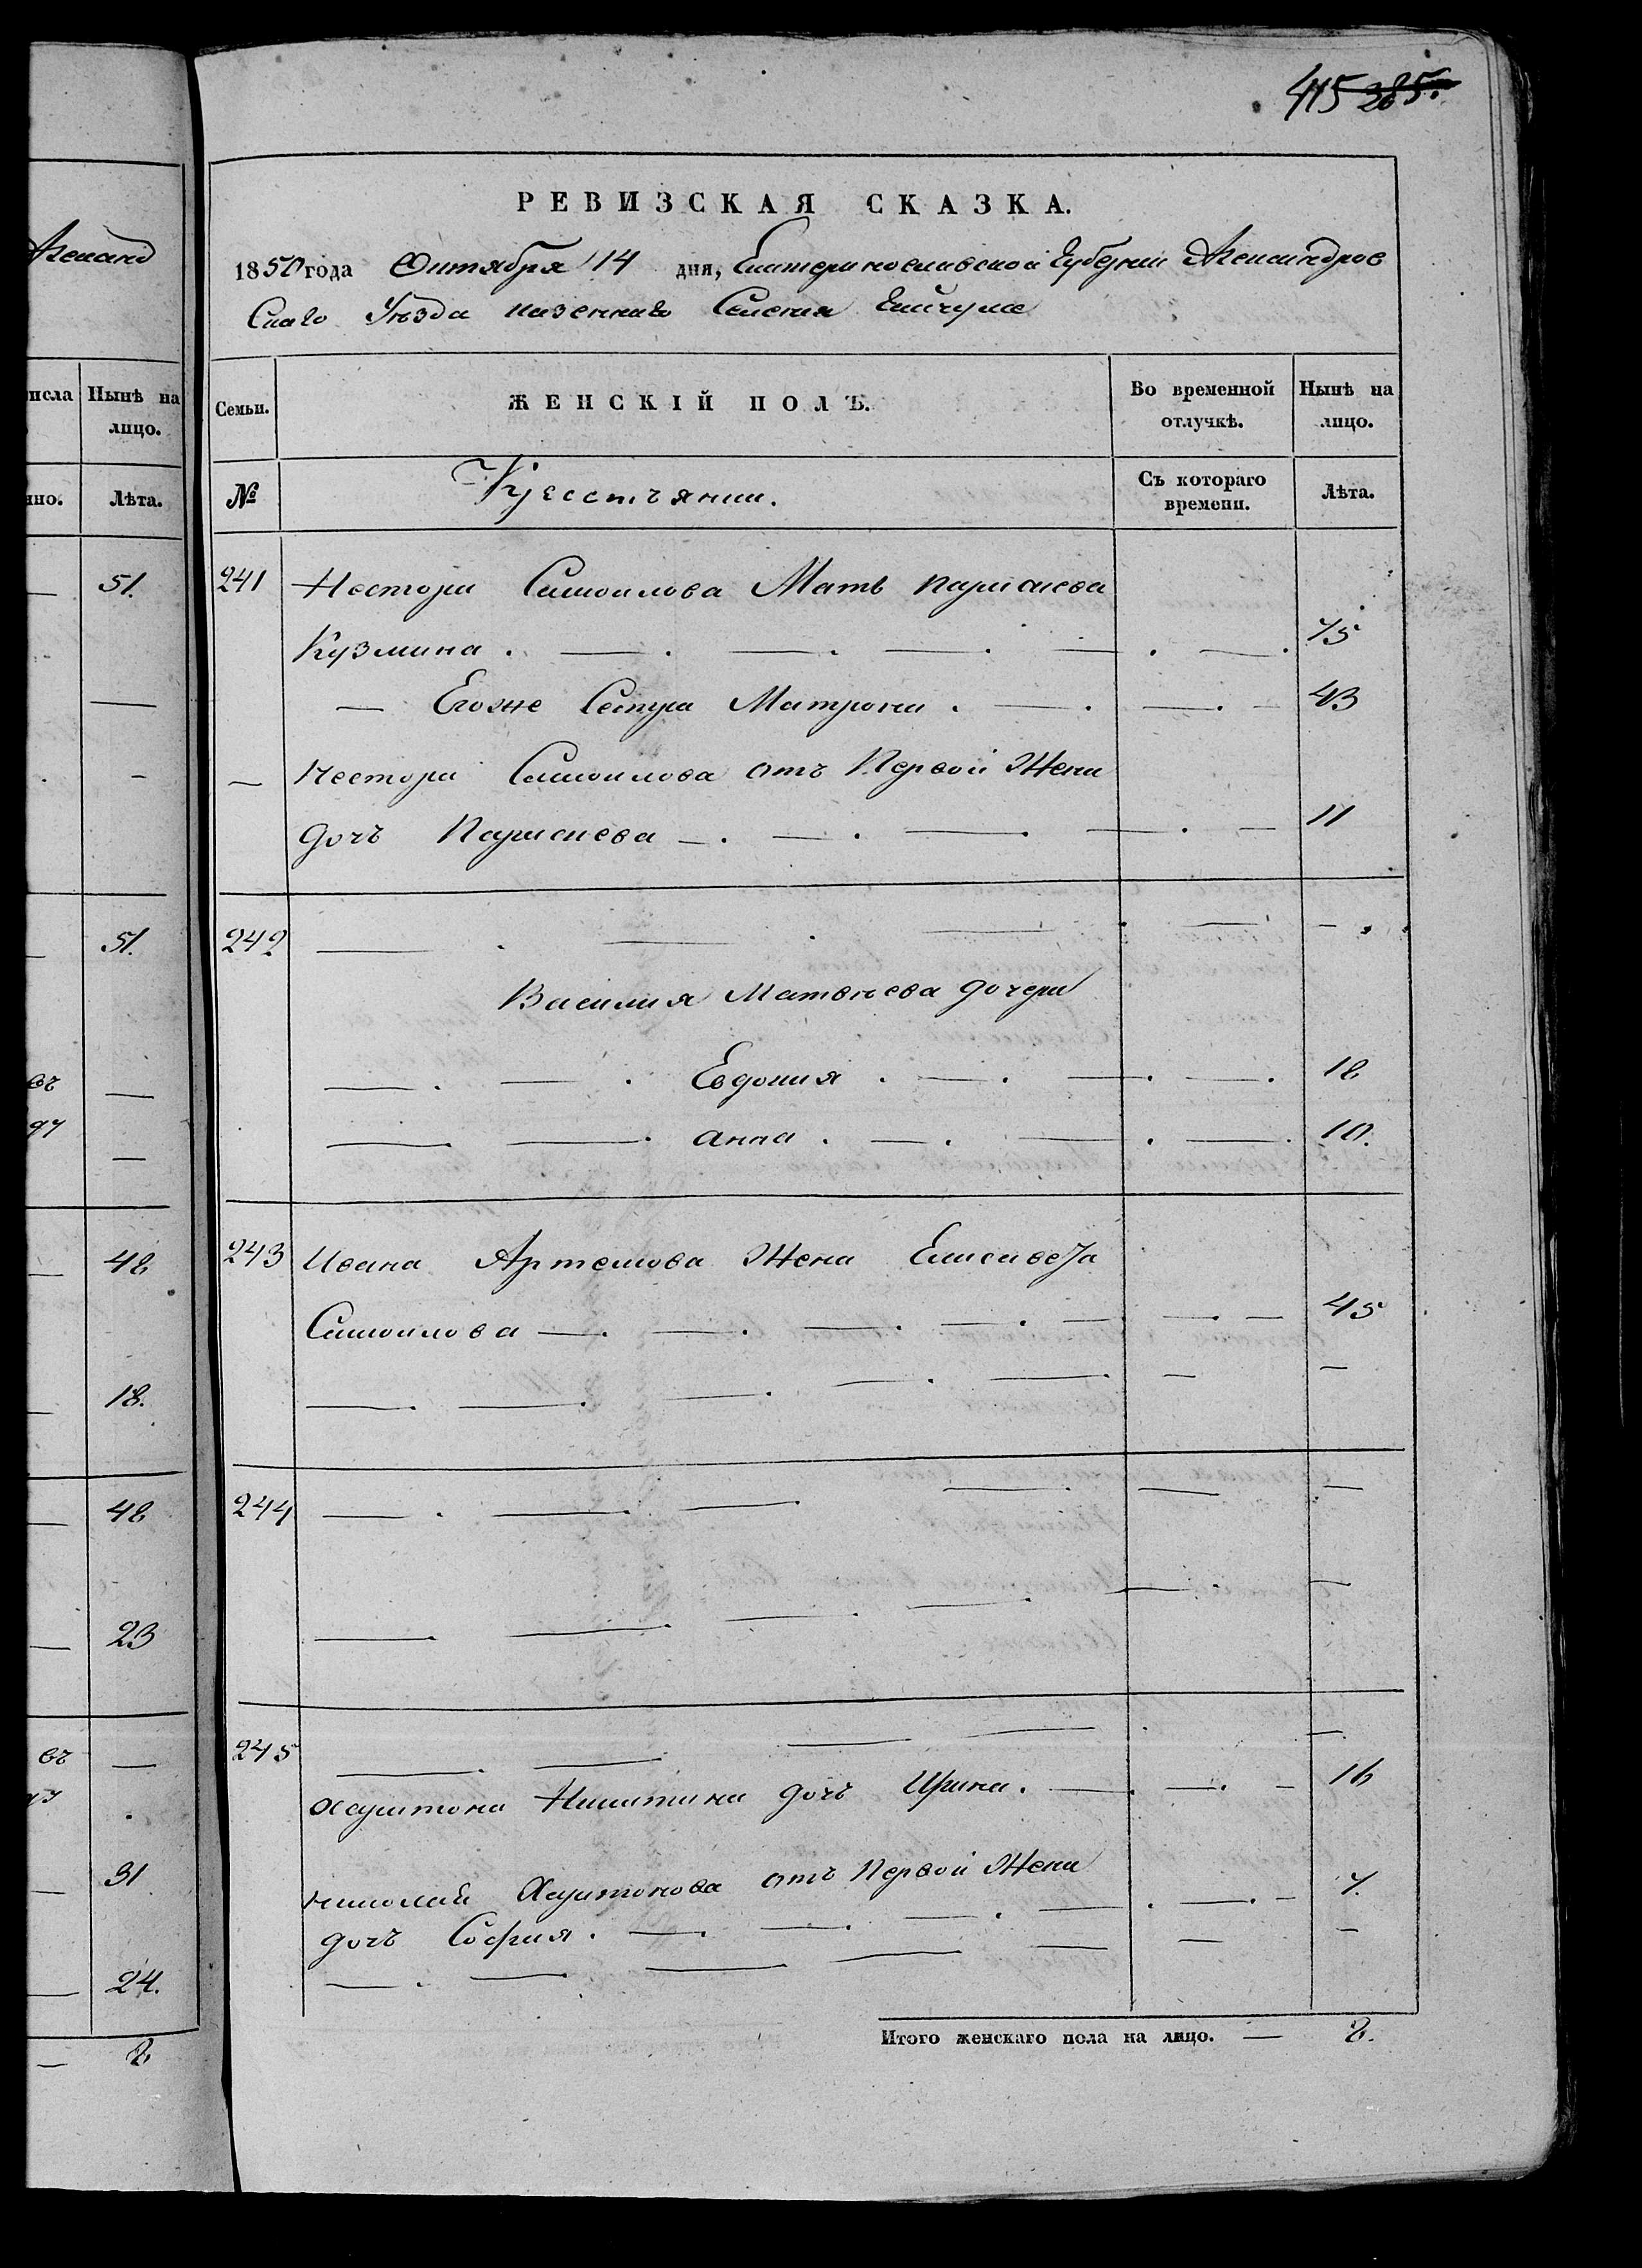 415 385.
Аленанд
исла Нынѣ на
лицо.
нно. Лѣта.
51.
51.
въ
48
18.
48
23
въ
31
24.
8
РЕВИЗСКАЯ СКАЗКА.
1850 года Октября 14 дня, Екатеринославской Губерніи Александров
Скаго Уѣзда казеннаго Селенія
Семьи. ЖЕНСКІЙ ПОЛЪ. Во временной Нынѣ на
отлучкѣ. лицо.
№ Съ котораго Лѣта.
времени.
241 Нестора Самоилова Мать параскева
Кузмина 75
Егоже Сестра Матрона 43
Нестора Самоилова отъ Первой Жены
дочъ Параскева 11
242
Василия Матвѣева дочери
Евдокия 18
анна 10.
243 Ивана Артемова Жена Елисавета
Самоилова 45
244
245
Харитона Никитина дочъ Ирина. 16
николай Харитонова отъ Первой Жены 7.
дочъ София.
Итого женскаго пола на лицо. — 8.